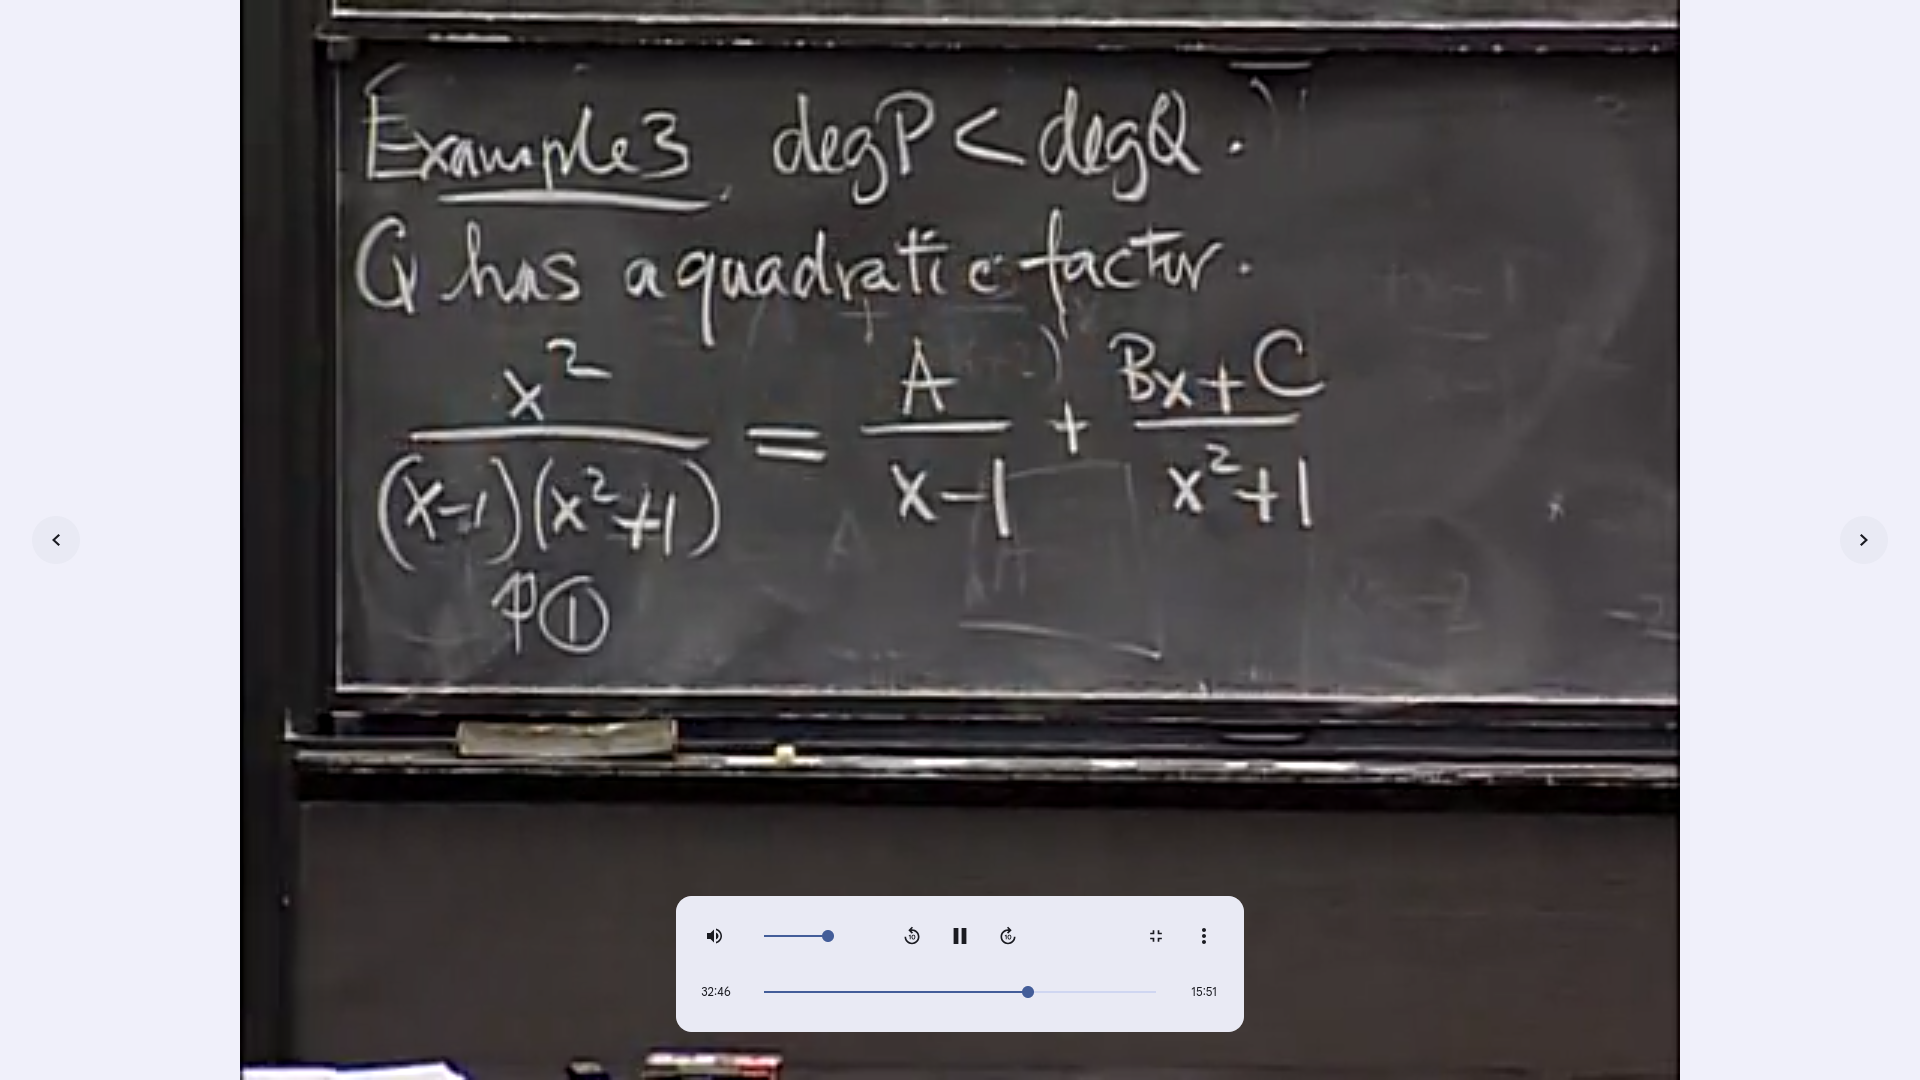 Example 3. deg P < deg Q.
Q has a quadratic factor.
x² / (x-1)(x²+1) = A / x-1 + Bx+C / x²+1
↑①
32:46
15:51